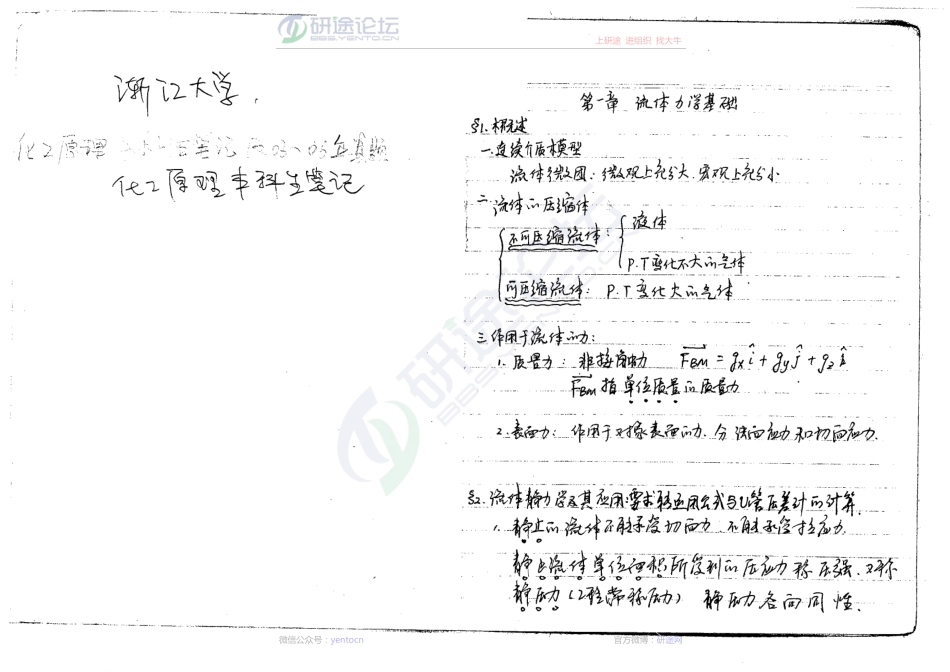 研途论坛
BBS.YENTO.CN
上研途 进组织 找大牛
浙江大学,
化工原理
化工原理本科生笔记
第一章 流体力学基础
§1.概述
一.连续介质模型
流体微团:微观上充分大.宏观上充分小
二.流体的压缩体
不可压缩流体: 液体
P.T变化不大的气体
可压缩流体: P.T变化大的气体
三.作用于流体的力:
1. 质量力: 非接触力 F_BM = gx i + gy j + gz k
F_BM 指单位质量的质量力
2.表面力: 作用于对象表面的力.分法向应力和切向应力.
§2.流体静力学及其应用:要求转运用公式与U管压差计的计算.
1. 静止的流体不能承受切向力.不能承受拉应力.
静止流体单位面积所受到的压应力称压强.又称
静压力(工程常称压力) 静压力各向同性.
研途论坛
微信公众号：yentocn
官方微博：研途网